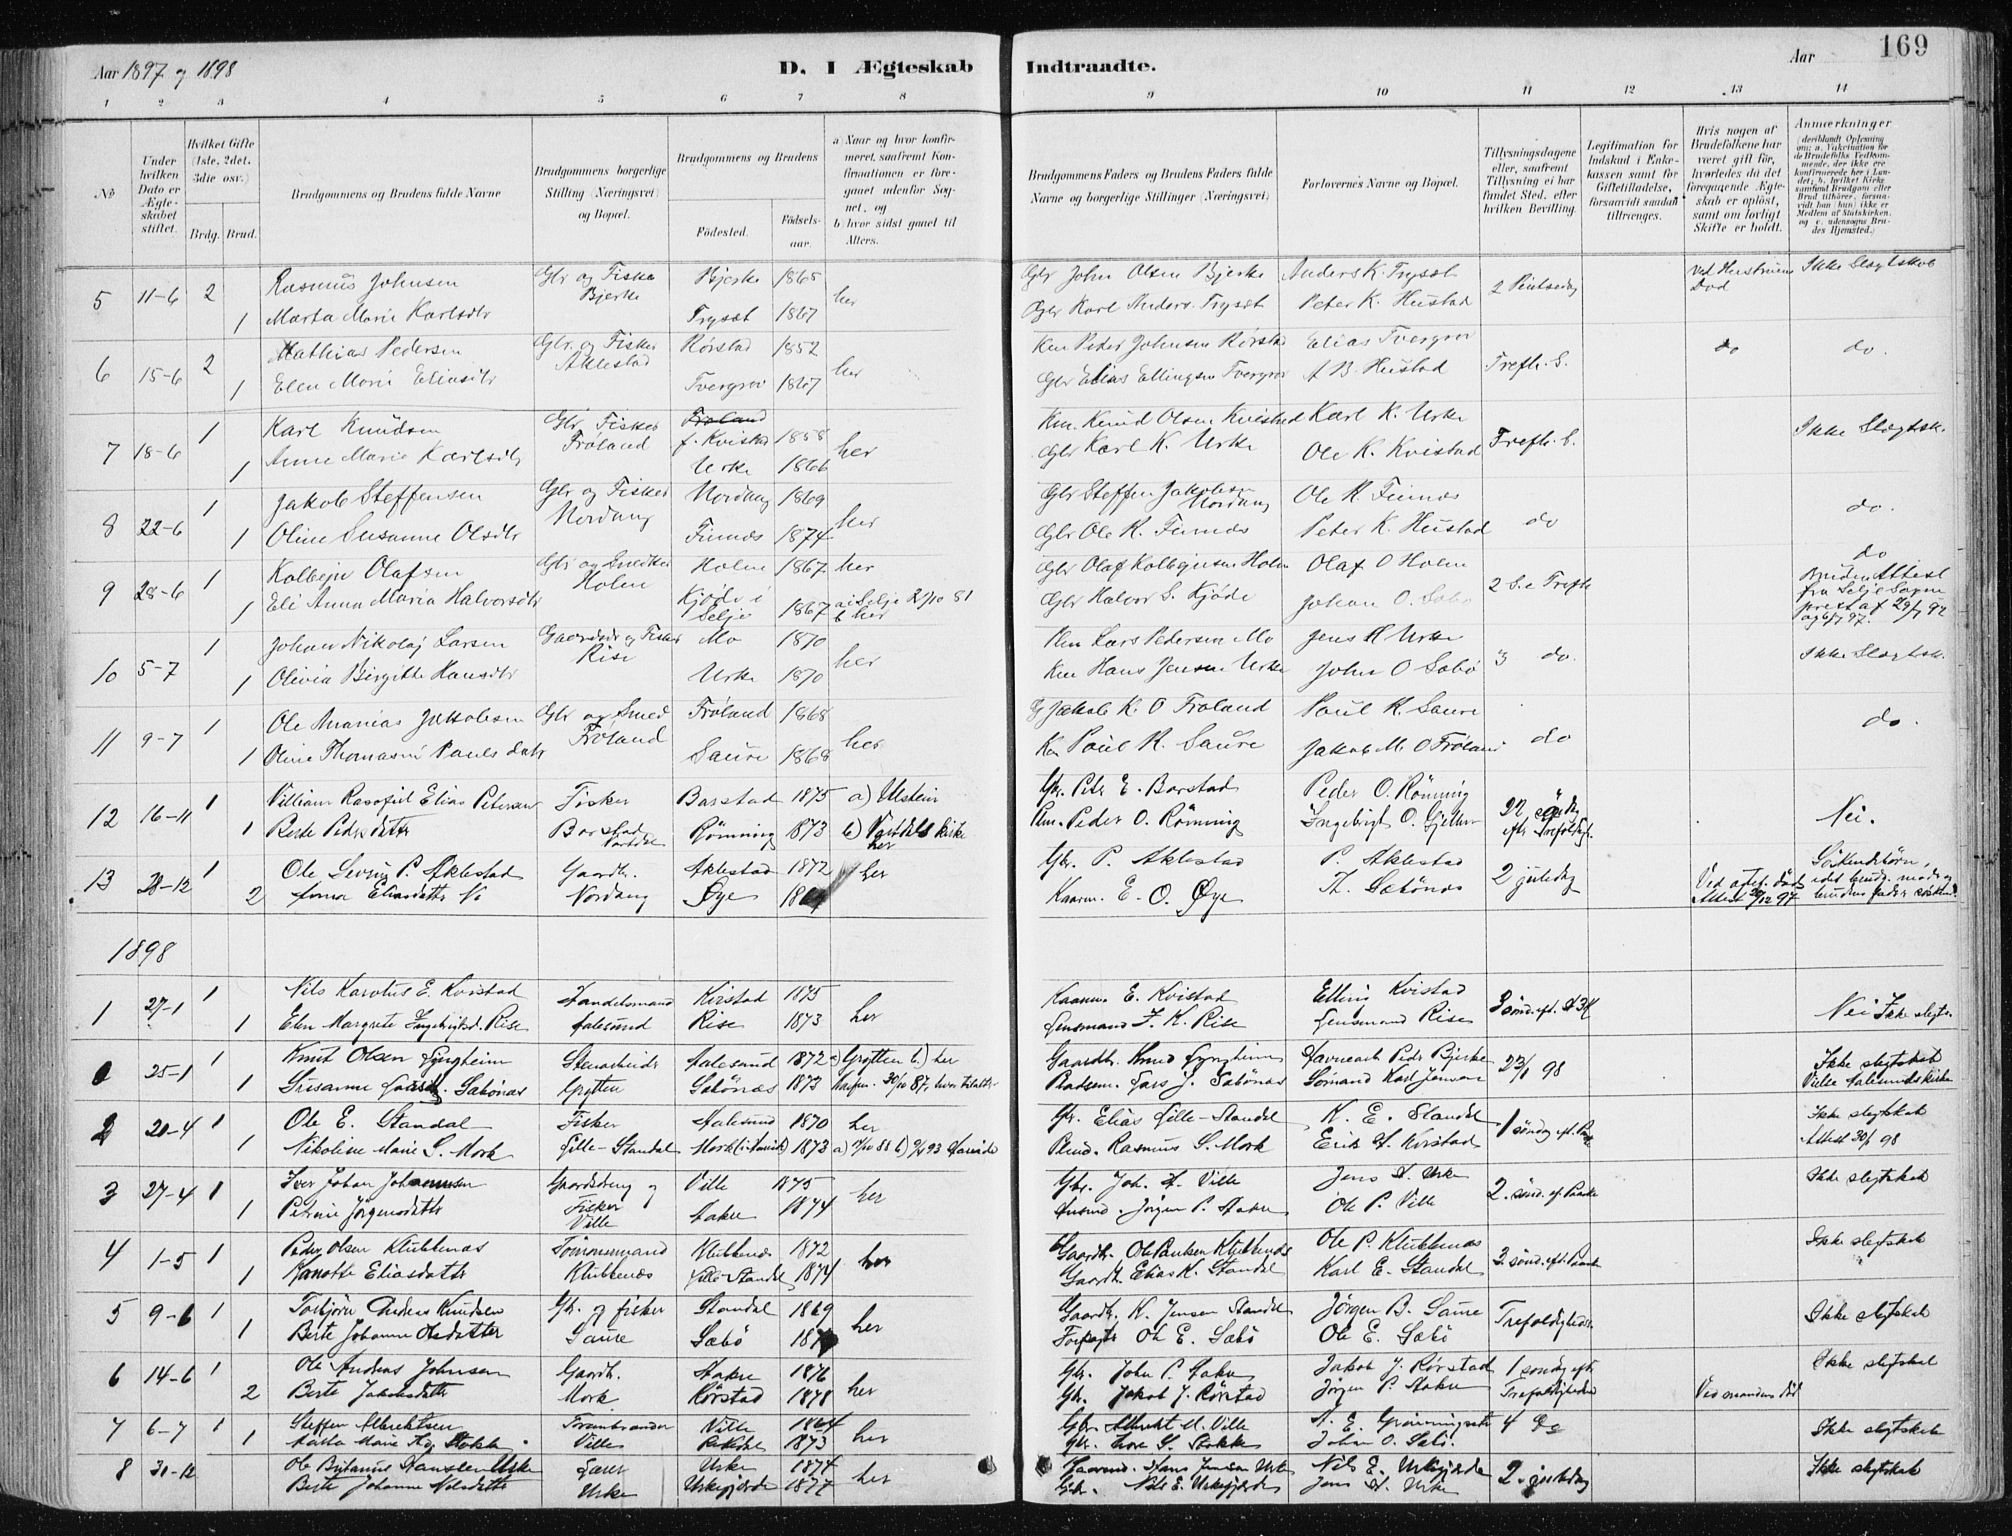 Aar 1897 og 1898
D. I Ægteskab Indtraadte.
Aar
169
1 2 3 4 5 6 7 8 9 10 11 12 13 14
No
Under hvilken Dato er Ægteskabet stiftet.
Hvilket Gifte (1ste, 2det, 3die osv.)
Brdg. Brud.
Brudgommens og Brudens fulde Navne
Brudgommens borgerlige Stilling (Næringsvei) og Bopæl.
Brudgommens og Brudens
Fødested. Fødselsaar.
a Naar og hvor konfirmeret, saafremt Konfirmationen er foregaaet udenfor Sognet, og
b hvor sidst gaaet til Alters.
Brudgommens Faders og Brudens Faders fulde Navne og borgerlige Stillinger (Næringsvei)
Forlovernes Navne og Bopæl.
Tillysningsdagene eller, saafremt Tillysning ei har fundet Sted, efter hvilken Bevilling.
Legitimation for Indskud i Enkekassen samt for Giftetilladelse, forsaavidt saadan tiltrænges.
Hvis nogen af Brudefolkene har været gift før, hvorledes da det foregaaende Ægteskab er opløst, samt om lovligt Skifte er holdt.
Anmærkninger
5 11-6 2 Rasmus Johnsen Gbr og Fisker Bjerke Bjerke 1865 her Gbr John Olsen Bjerke Anders K. Trysæt 2 Pintsedag Ved Hustruens Død Ikke Slægtskab
1 Marta Marie Karlsdtr Trysæt 1867 Gbr Karl Anders. Trysæt Peter K. Hustad
6 15-6 2 Mathias Pedersen Gbr. og Fisker Aklestad Rørstad 1852 her Km Peder Johnsen Rørstad Elias Tvergrov Trefh. S. do do.
1 Elen Marie Eliasdtr Tvergrov 1867 Gbr Elias Ellingsen Tvergrov A B. Hustad
7 18-6 1 Karl Knudsen Gbr Fisker Frøland f. Kvistad 1858 her Km. Knud Olsen Kvistad Karl K. Urke Trefh. S. Ikke Slægtsk.
1 Anne Marie Karlsdtr Urke 1866 Gbr Karl K. Urke Ole K. Kvistad
8 22-6 1 Jakob Steffensen Gbr og Fisker Nordang Nordang 1869 her Gbr Steffen Jakobsen Nordang Ole R. Finnes do do.
1 Oline Susanne Olsdtr Finnes 1874 Gbr Ole R. Finnes Peter K. Hustad
9 28-6 1 Kolbejn Olafsen Gbr og Snedker Holen Holen 1867 her Gbr Olaf Kolbejnsen Holen Olaf O Holen 2 S. e Trefh do
1 Eli Anna Maria Halvorsdtr Kjøde i Selje 1867 a i Selje 2/10 81 b her Gbr Halvor S. Kjøde Johan O. Sæbø Bruden Attest fra Selje Sogneprest af
10 5-7 1 Johan Nikolaj Larsen Gaardbr og Fisker Rise Mo 1870 her Km Lars Pedersen Mo Jens H Urke 3 do. Ikke Slægtsk.
1 Olivia Birgitte Hansdtr Urke 1870 Km Hans Jensen Urke John O Sæbø
11 9-7 1 Ole Ananias Jakobsen Gbr og Smed Frøland Frøland 1868 her G Jakob K. O Frøland Paul K. Saure do do.
1 Oline Thomasine Paulsdatr Saure 1868 Km Paul K. Saure Jakob M. O Frøland
12 16-11 1 William Rasofiel Elias Petersen Fisker Barstad 1875 a) Ulstein Gbr. Petr E. Barstad Peder O. Rømming 22 søndag efter Trefoldigh. Nei.
1 Berte Pedersdatter Barstad Vartdal Rømming 1873 b) Vartdals kirke her Plm. Peder O. Rømming Ingebrigt O.
13 30-12 1 Ole Severin P. Aklestad Gaardbr. Aklestad 1872 her Gbr. P. Aklestad P. Aklestad 2 juledag Søskendebørn,
2 Anna Eliasdatter Nordang Øye Kaarm. E. O. Øye Th. Sæbønes Attest 30/12 97 brudens fader søskend.
1898
1 27-1 1 Nils Karolus E. Kvistad Handelsmand Kvistad 1875 her Kaarm. E. Kvistad Elling Kvistad Nei Ikke slegts.
1 Elen Margrete Ingebrigtsd. Rise Aalesund Rise 1873 Lensmand I. K. Rise Lensmand Rise
25-1 1 Knut Olsen Lyngheim Stenarbeider Aalesund 1872 a) Grytten b.) her Gaardbr. Knud Lyngheim Havnearb. Peder Bjerke 23/1 98 Ikke slegtskab
1 Susanne Larsd. Sæbønes Grytten Sæbønes 1873 Pladsm. Lars J. Sæbønes Sømand Karl Jensen Viede Aalesunds kirke
2 20-4 1 Ole E. Standal Fisker Aalesund 1870 her Gbr. Elias Lille-Standal K. E. Standal 1 søndag eft. Paaske Ikke slegtskab
1 Nikoline Marie S. Mork Lille-Standal Mork 1873 Rasmus S. Mork Erik A. Kvistad Attest 30/1 98
3 27-4 1 Iver Johan Johannesen Gaardbrug og Ville 1875 her Gbr. Joh. A. Ville Jens A. Urke 2. sønd. ef. Paaske Ikke slegtskab
1 Petrine Jørgensdatter Fisker Ville Aakre 1874 Jørgen P. Aakre Ole P. Ville
4 1-5 1 Peder Olsen Klubbenes Tømmermand Klubbenes 1872 her Gaardbr. Ole Paulsen Klubbenes Ole P. Klubbenes 3. sønd. eft. Paaske Ikke slegtskab
1 Hanotte Eliasdatter Klubbenes Lille-Standal 1874 Gaardbr. Elias K. Standal Karl E. Standal
5 9-6 1 Torbjørn Anders Knudsen Gbr. og fisker Standal 1869 her Gaardbr. K. Jensen Standal Jørgen B. Saure Trefoldigheds. Ikke slegtskab
1 Berte Johanne Olsdatter Saure Sæbø Forpagter Ole E. Sæbø Ole E. Sæbø
6 14-6 1 Ole Andreas Johnsen Gaardbr. Aakre 1876 her Gbr. John P. Aakre Jakob J. Rørstad 1 søndag efter Trefoldighed Ikke slegtskab
2 Berte Jakobsdatter Mork Rørstad 1878 Gbr. Jakob J. Rørstad Jørgen P. Aakre Ved mandens død
7 6-7 1 Steffen Albrektsen Ville 1864 her Gbr. Albrekt M. Ville A. E. 4 Do Ikke slegtskab
1 Marta Marie Stokke Ville 1873 Gbr. G. Stokke Johan O. Sæbø.
8 30-12 Ole Hansen Urke Lærer Urke 1874 her Kaarmd. Hans Jensen Urke Nils E. Urkegjerde 2. juledag Ikke slegtskab
Berte Johanne Nilsdatter Urke Urkegjerde 1877 Gbr. Nils E. Urkegjerde Jens H. Urke